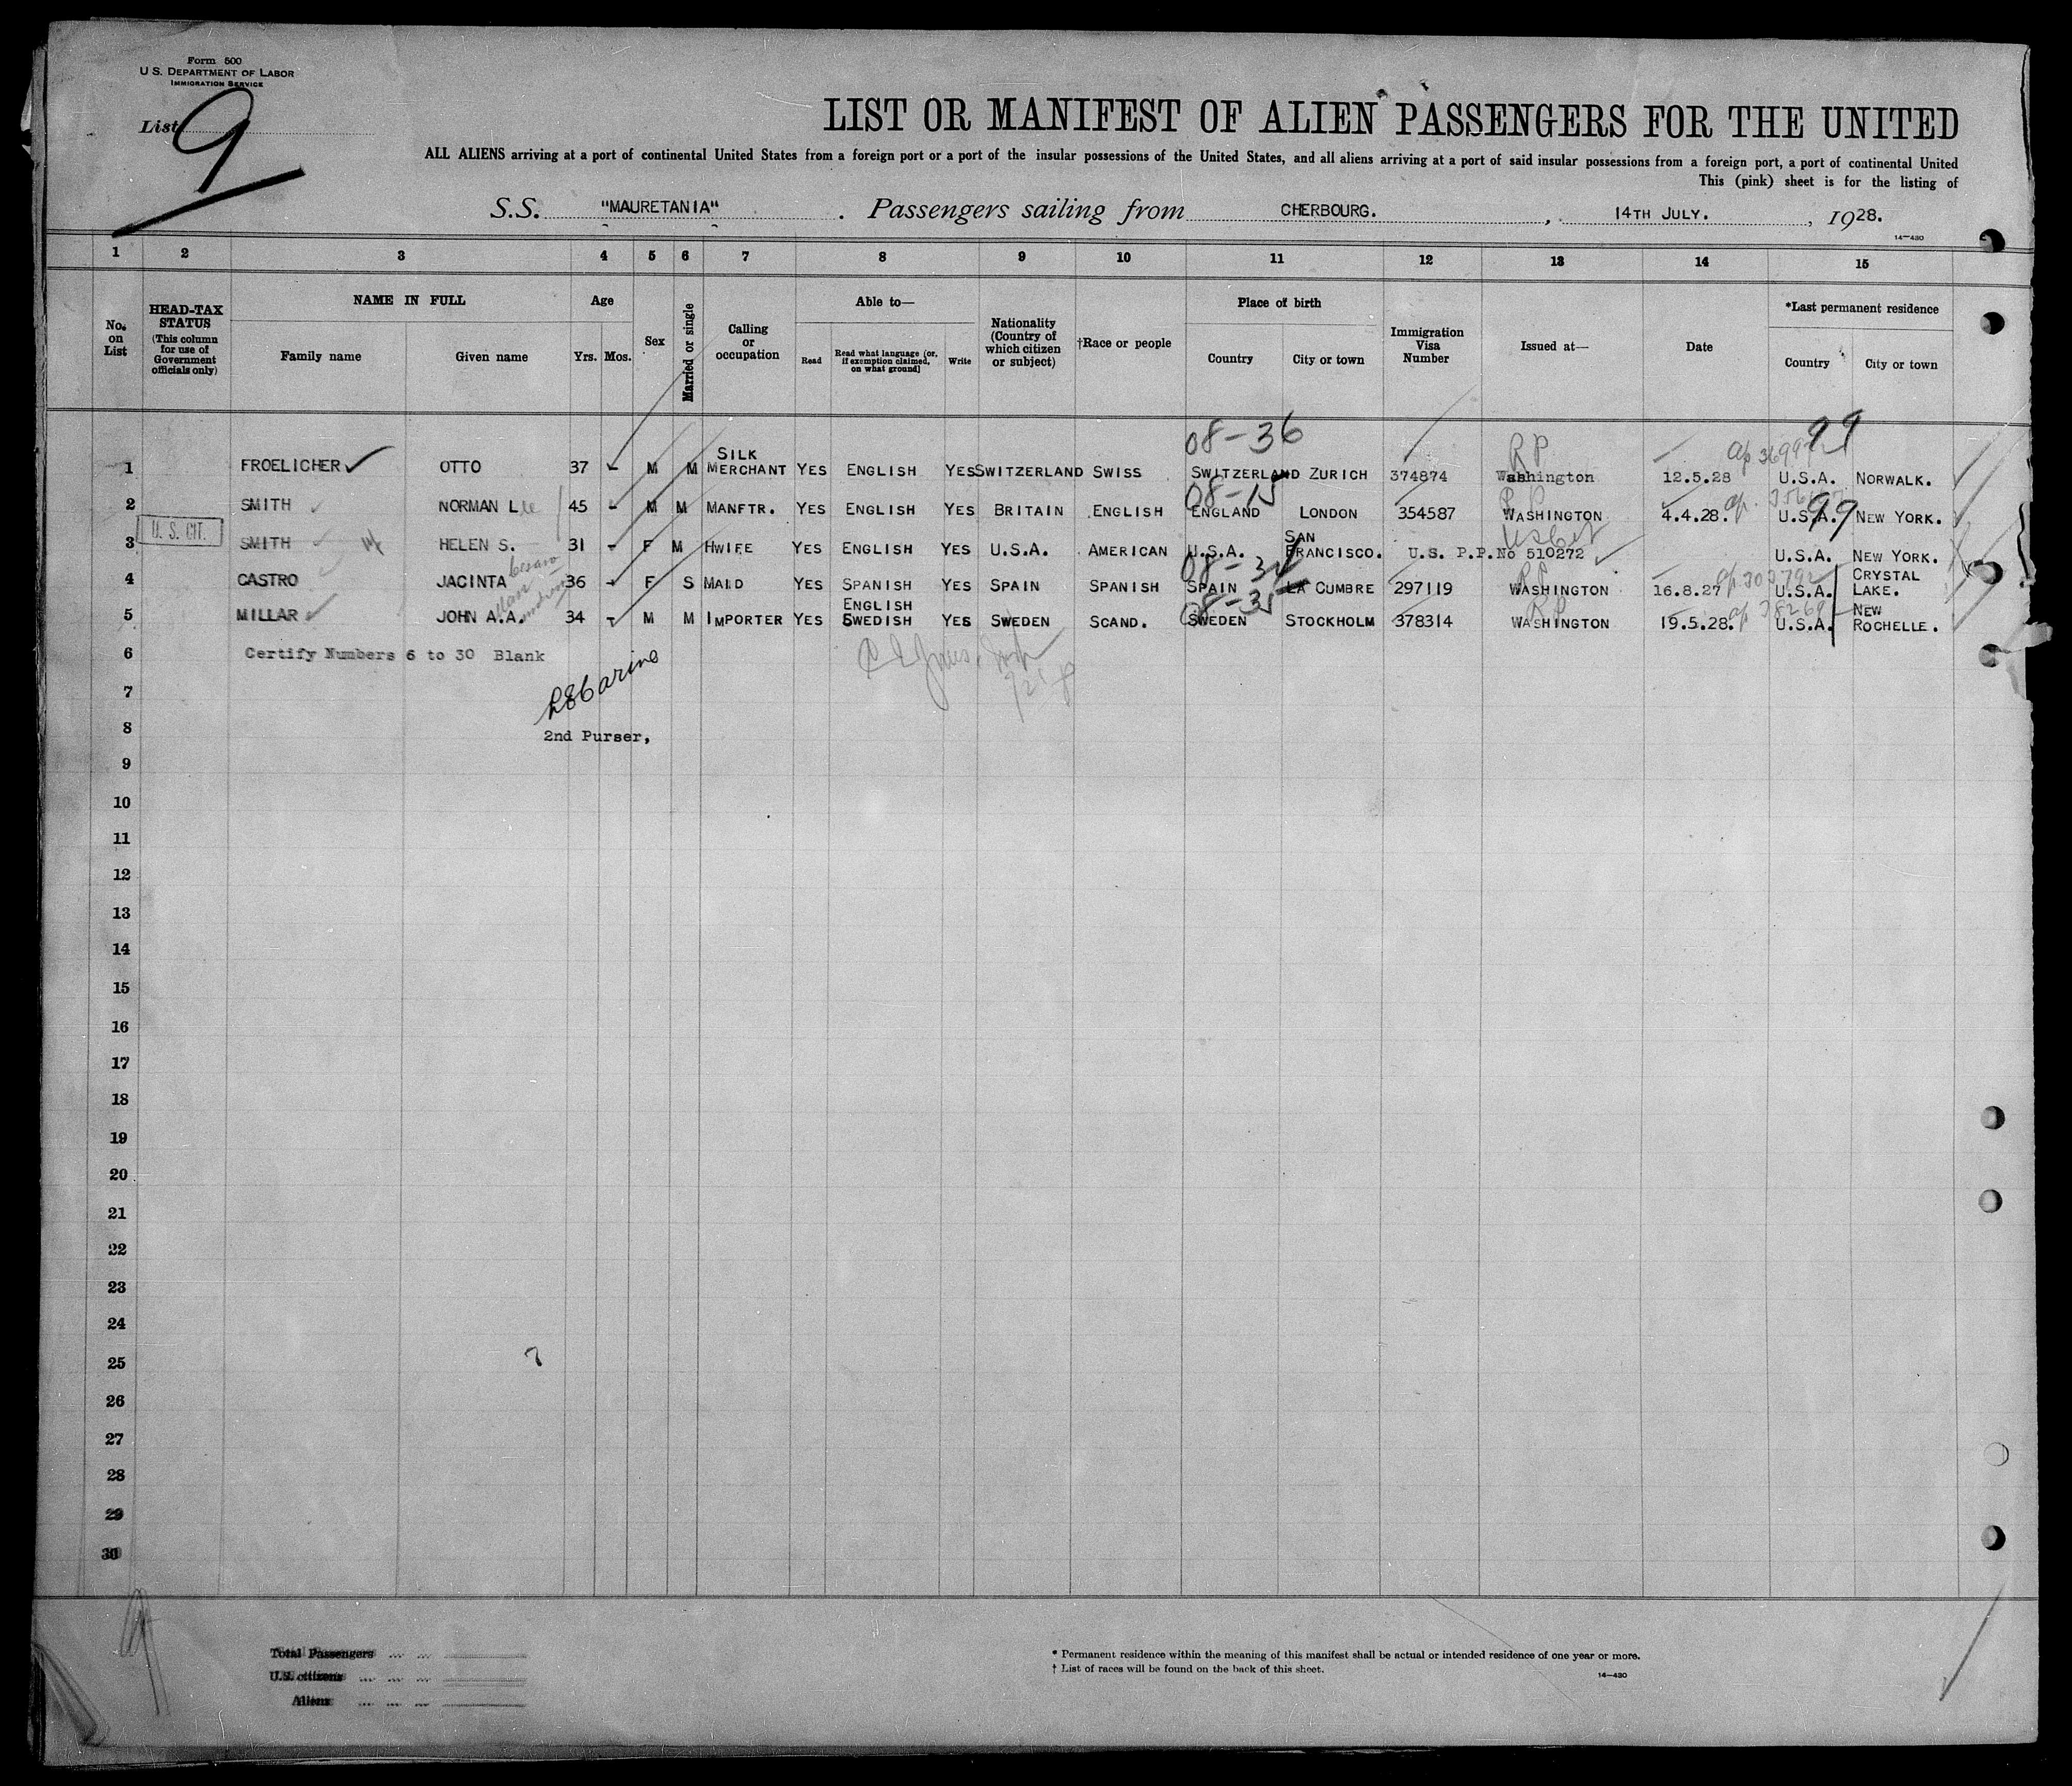 Form 500
U S. DEPARTMENT OF LABOR
IMMIGRATION SERVICE
List 9
LIST OR MANIFEST OF ALIEN PASSENGERS FOR THE UNITED
ALL ALIENS arriving at a port of continental United States from a foreign port or a port of the insular possessions of the United States, and all aliens arriving at a port of said insular possessions from a foreign port, a port of continental United
This (pink) sheet is for the listing of
S.S. "MAURETANIA". Passengers sailing from CHERBOURG. , 14TH JULY. , 1928.
14—430
1 2 3 4 5 6 7 8 9 10 11 12 13 14 15
No. on List
HEAD-TAX STATUS (This column for use of Government officials only)
NAME IN FULL
Family name Given name
Age
Yrs. Mos.
Sex
Married or single
Calling or occupation
Able to—
Read Read what language (or, if exemption claimed, on what ground) Write
Nationality (Country of which citizen or subject)
†Race or people
Place of birth
Country City or town
Immigration Visa Number
Issued at—
Date
*Last permanent residence
Country City or town
08-36 RP 99
1 FROELICHER OTTO 37 - M M SILK MERCHANT YES ENGLISH YES SWITZERLAND SWISS SWITZERLAND ZURICH 374874 Washington 12.5.28 U.S.A. NORWALK.
08-15 RP 99
2 SMITH NORMAN L 45 - M M MANFTR. YES ENGLISH YES BRITAIN ENGLISH ENGLAND LONDON 354587 WASHINGTON 4.4.28. U.S.A. NEW YORK.
U. S. CIT.
3 SMITH HELEN S. 31 - F M HWIFE YES ENGLISH YES U.S.A. AMERICAN U.S.A. SAN FRANCISCO. U.S. P.P.No 510272 U.S.A. NEW YORK.
RP
4 CASTRO JACINTA 36 - F S MAID YES SPANISH YES SPAIN SPANISH SPAIN LA CUMBRE 297119 WASHINGTON 16.8.27 U.S.A. CRYSTAL LAKE.
RP
5 MILLAR JOHN A.A. 34 - M M IMPORTER YES ENGLISH SWEDISH YES SWEDEN SCAND. SWEDEN STOCKHOLM 378314 WASHINGTON 19.5.28. U.S.A. NEW ROCHELLE.
6 Certify Numbers 6 to 30 Blank
7
8 2nd Purser,
9
10
11
12
13
14
15
16
17
18
19
20
21
22
23
24
25
26
27
28
29
30
Total Passengers
U.S. citizens
Aliens
* Permanent residence within the meaning of this manifest shall be actual or intended residence of one year or more.
† List of races will be found on the back of this sheet.
14—430